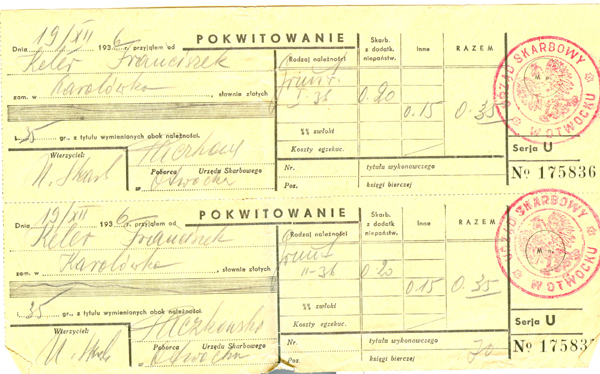 19/XII
Dnia 193 6 przyjąłem od
Keler Franciszek
Karolówka
zam. w , słownie złotych
i 35 gr., z tytułu wymienionych obok należności.
Wierzyciel:
Poborca Urzędu Skarbowego
w Otwocku
POKWITOWANIE
Rodzaj należności
Skarb. z dodatk. niepaństw.
Inne
RAZEM
Grunt.
I-36
0.20
0.15
0.35
%% zwłoki
Koszty egzekuc.
Nr. tytułu wykonawczego
Poz. księgi bierczej
URZĄD SKARBOWY
W OTWOCKU
Serja U
Nº 175836
19/XII
Dnia 193 6 przyjąłem od
Keler Franciszek
Karolówka
zam. w , słownie złotych
i 35 gr., z tytułu wymienionych obok należności.
Wierzyciel:
Poborca Urzędu Skarbowego
w Otwocku
POKWITOWANIE
Rodzaj należności
Skarb. z dodatk. niepaństw.
Inne
RAZEM
Grunt
II-36
0.20
0.15
0.35
%% zwłoki
Koszty egzekuc.
Nr. tytułu wykonawczego
Poz. księgi bierczej
70
URZĄD SKARBOWY
W OTWOCKU
Serja U
Nº 175837